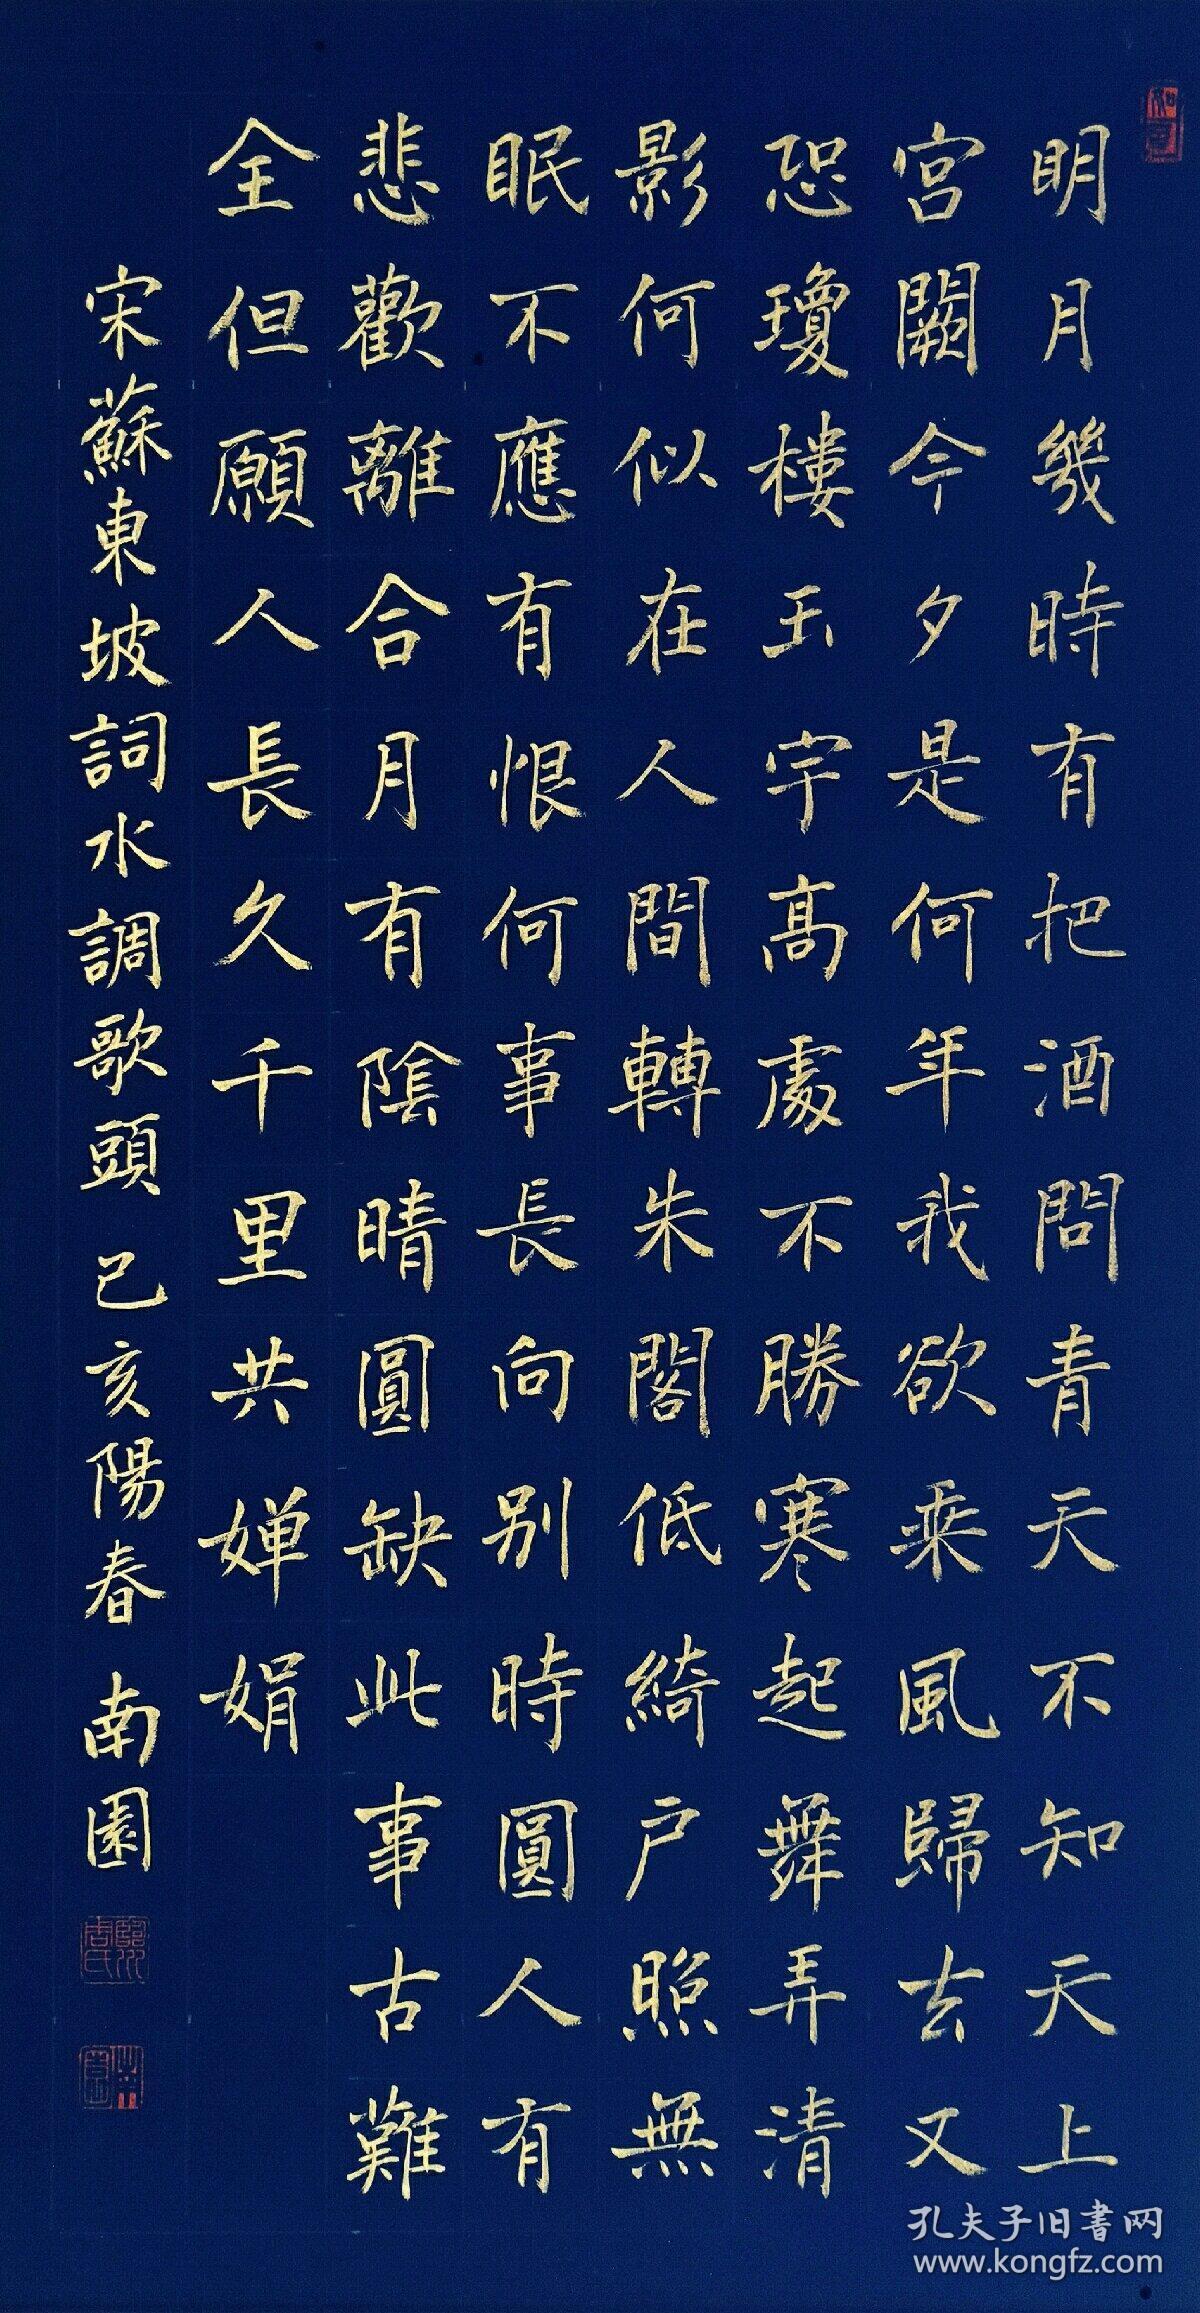 明月幾時有把酒問青天不知天上
宮闕今夕是何年我欲乘風歸去又
恐瓊樓玉宇高處不勝寒起舞弄清
影何似在人間轉朱閣低綺户照無
眠不應有恨何事長向别時圓人有
悲歡離合月有陰晴圓缺此事古難
全但願人長久千里共嬋娟
宋蘇東坡詞水調歌頭 己亥陽春 南園
孔夫子旧書网
www.kongfz.com